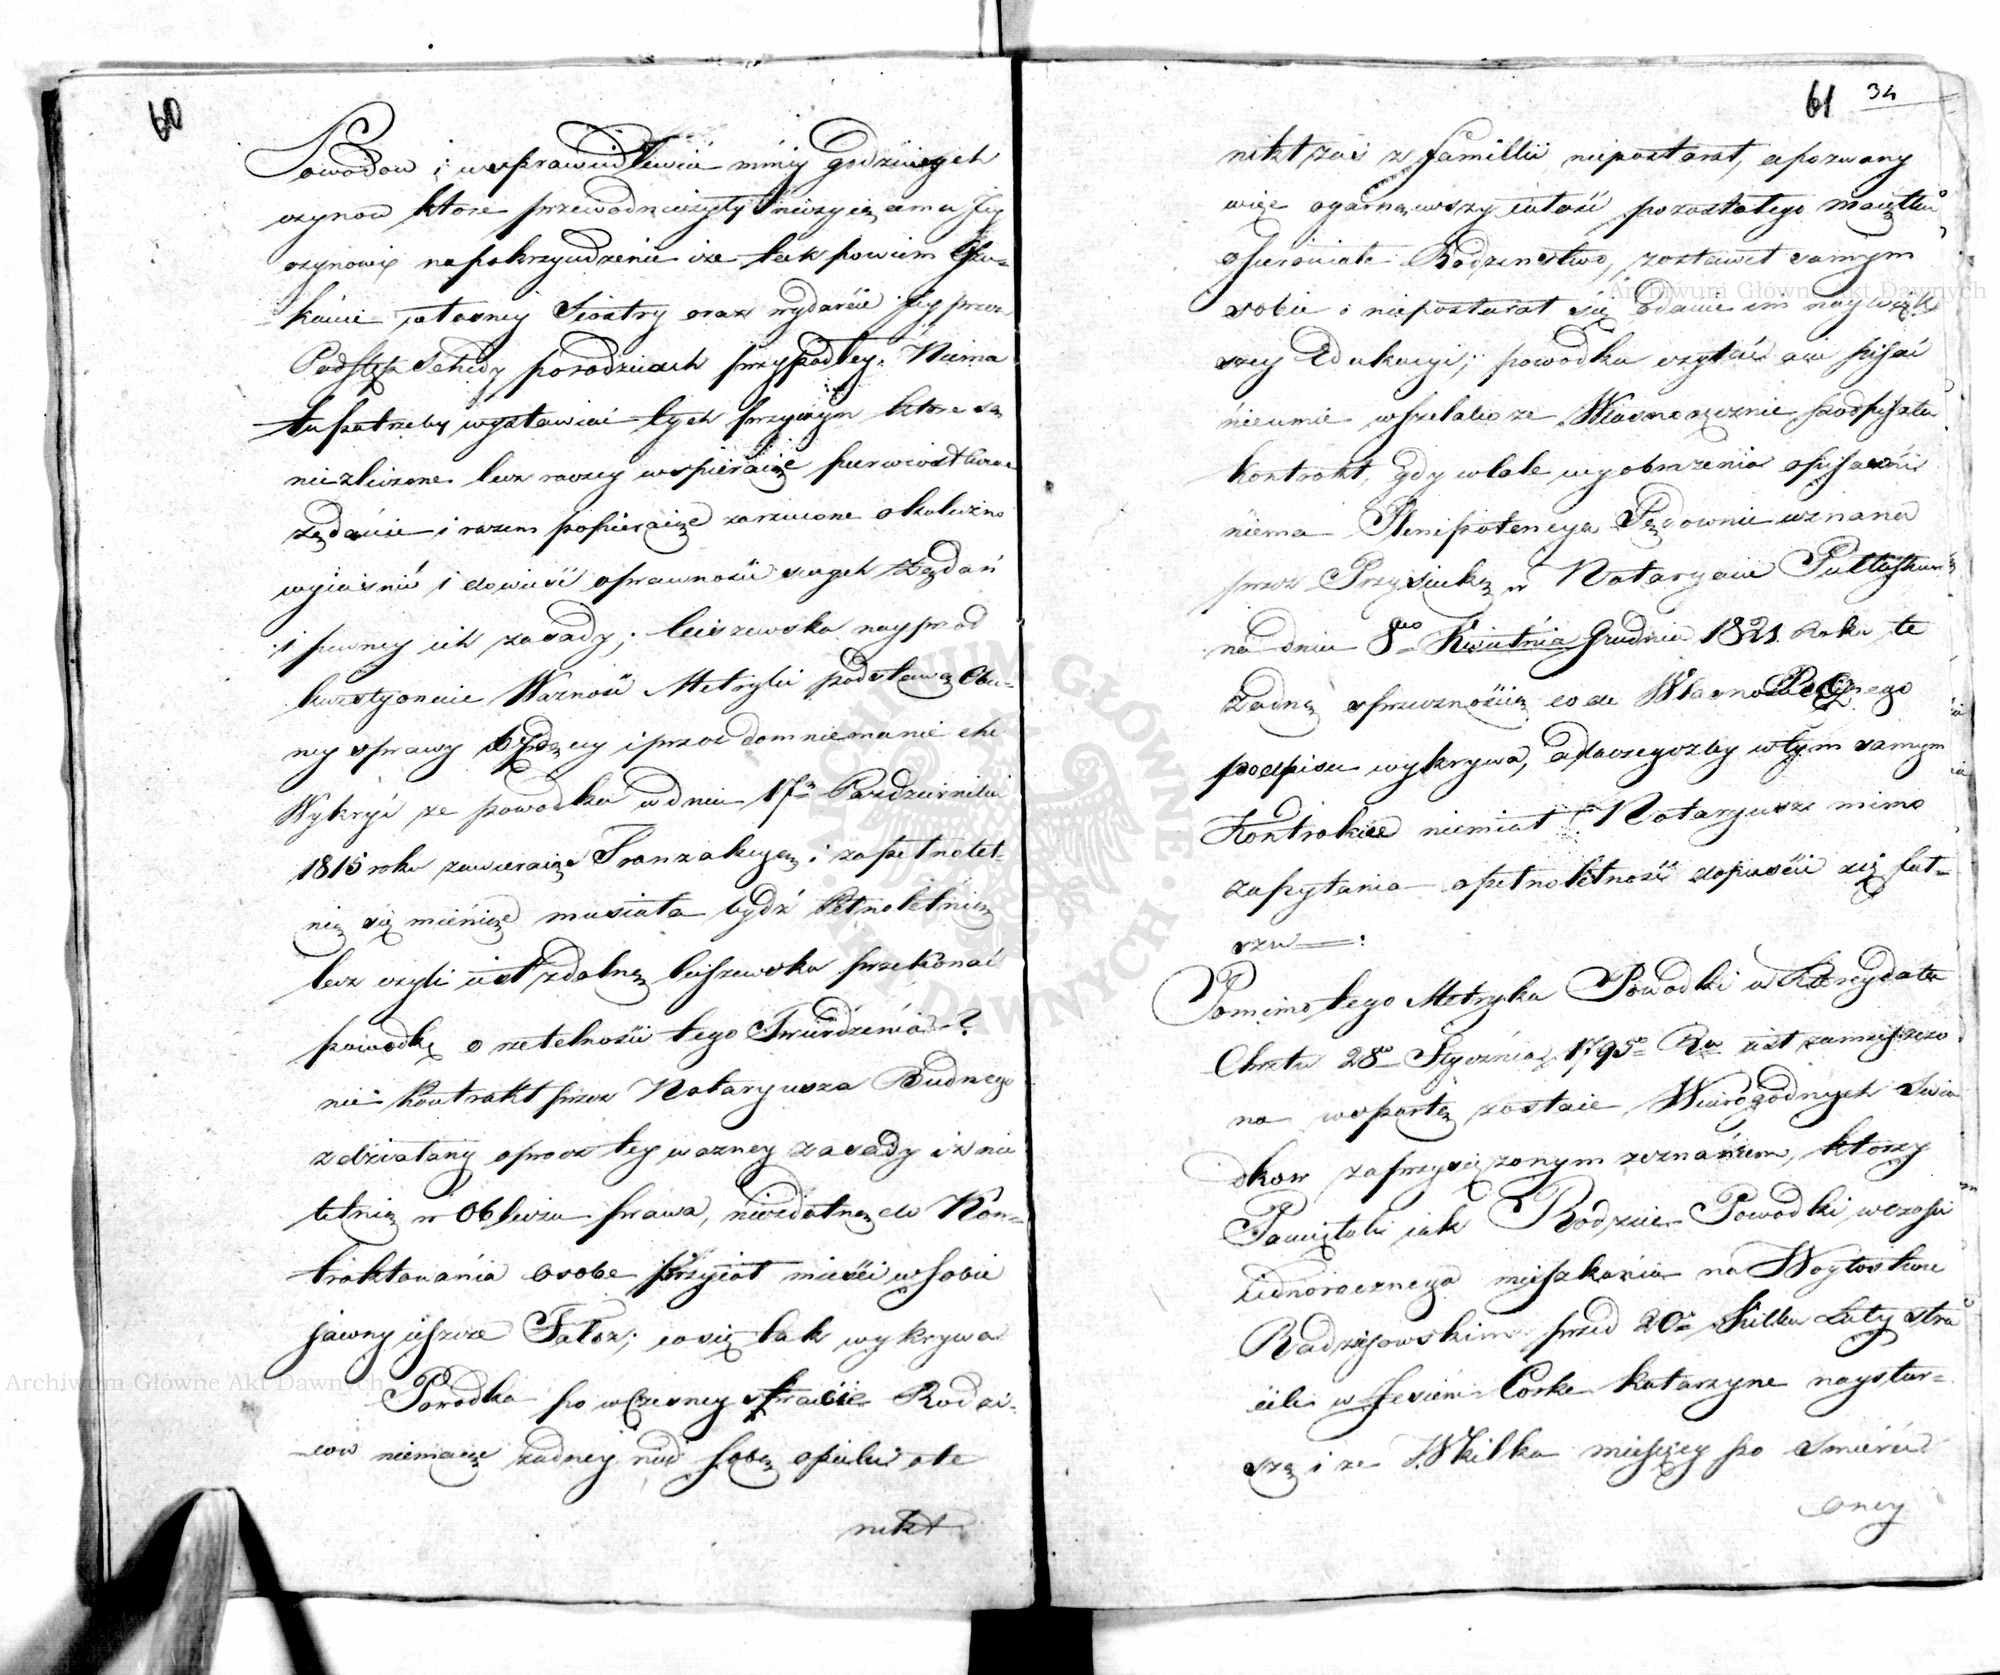 60
Powodow i usprawiedliwić mniey godziwych
czynow ktore przewodniczyły niniejszemu Jey
czynowi na pokrzywdzenie ize tak powiem
własney Siostry oraz wydarcie Jey przez
Podstęp Schedy porodzicach przypadłey. Niema
tu potrzeby wystawiać tych przyczyn ktore są
niezliczone lecz raczey wspieraiąc pierwiastkowe
żądanie i razem popieraiąc zarzucone okoliczno
wyiaśnić i dowieść oprawności swych Żądań
i pewney ich zasady; Ciszewska nayprzod
kwestyonuie Ważność Metryki podstawą
ney sprawy będącey i przez domniemanie chce
Wykryć ze powodka w dniu 17m Pazdziernika
1815 roku zawieraiąc Tranzakcyą i zapełnolet-
nią się mieniąc musiała bydź Pełnoletnią
lecz czyli iest zdolną Ciszewska przekonać
powodkę o rzetelności tego Twierdzenia?
nie Kontrakt przez Notaryusza Budnego
zdziałany oprocz tey wazney zasady iz nie
letnią w Obliczu prawa, niezdatną do Kon-
traktowania osobe przyiął mieści w sobie
jawny ieszcze Fałsz; co się tak wykrywa
Powodka po wczesney stracie Rodzi-
cow niemaiąc żadney nad sobą opieki ale
nikt
61 34
nikt zaś z familii niepostarał, a pozwany
więc ogarnąwszy całość pozostałego maiątku
osierociałe Rodzenstwo, zostawił samym
sobie i niepostarał się odanie im naywięk
szey Edukacyi; powodka czytać ani pisać
nieumie wszelako ze Własnoręcznie podpisała
kontrakt, gdy wcale wyobrazenia opisaniu
niema Plenipotencya Sądownie uznana
przez Przysiężką w Notaryacie Pułtuskim
na dniu 8go Kwietnia Grudnia 1821 Roku, te
Żadną sprzecznością co do Własnoręcznego
podpisu wykrywa, a dlaczegozby w tym samym
Kontrakcie niemiał Notaryusz mimo
zapytania opełnoletność dopuścić się fał-
szu —:
Pomimo tego Metryka Powodki w Której data
Chrztu 28go Stycznia 1795o Ru iest zamieszczo
na wspartą zostaie Wiarogodnych Swia
dkow zaprzysiężonym zeznaniem, ktorzy
Pamiętali iak Rodzice Powodki w czasie
iednorocznego mieszkania na Woytostwie
Radziejowskim przed 20m Kilku Laty stra
cili w Jesieni Corke Katarzyne naystar-
szą i ze W kilka miesięcy po śmierci
oney
Archiwum Główne Akt Dawnych
Archiwum Główne Akt Dawnych
ARCHIWUM GŁÓWNE AKT DAWNYCH